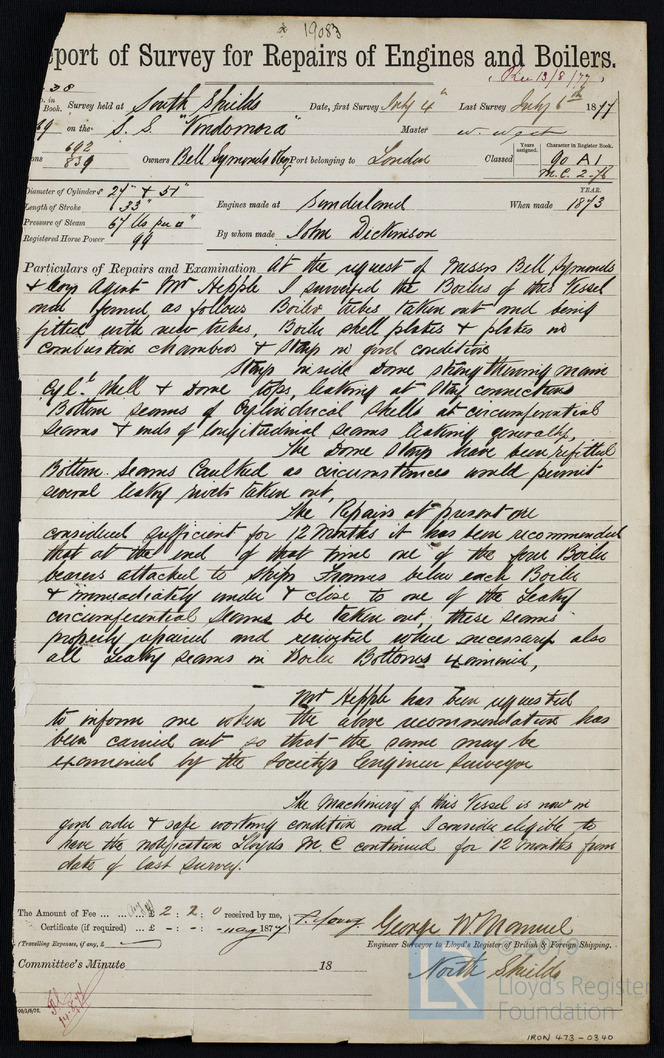 * 19083
port of Survey for Repairs of Engines and Boilers.
Rec 13/8/77
38
Book. Survey held at South Shields Date, first Survey July 4th Last Survey July 6th 1877
on the S. S. "Vindomora" Master W. West
692
ons 839 Owners Bell Symonds & Coy Port belonging to London Classed Years assigned. Character in Register Book. 90 A1
M.C. 2-76
Diameter of Cylinders 27" & 51"
Length of Stroke 33"
Pressure of Steam 67 lbs per □"
Registered Horse Power 99
Engines made at Sunderland When made YEAR. 1873
By whom made John Dickinson
Particulars of Repairs and Examination At the request of Messrs Bell Symonds
& Coys Agent Mr Hepple I surveyed the Boilers of this Vessel
and found as follows Boiler tubes taken out and being
fitted with new tubes, Boiler shell plates & plates in
combustion chambers & Stays in good condition
Stays inside Dome strengthening main
Cylr. Shell & Dome tops, leaking at Stay connections
Bottom seams of Cylindrical Shells at circumferential
seams & ends of longitudinal seams leaking generally,
The Dome Stays have been refitted
Bottom Seams Caulked as circumstances would permit
several leaky rivets taken out,
The Repairs at present are
considered sufficient for 12 Months it has been recommended
that at the end of that time one of the four Boiler
bearers attached to Ships Frames below each Boiler
& immediately under & close to one of the Leaky
circumferential Seams be taken out, these seams
properly repaired and rivetted where necessary also
all Leaky seams in Boiler Bottoms examined,
Mr Hepple has been requested
to inform me when the above recommendation has
been carried out so that the same may be
examined by the Society's Engineer Surveyor
The Machinery of this Vessel is now in
good order & safe working condition and I consider eligible to
have the notification Lloyds M.C continued for 12 months from
date of last survey.
The Amount of Fee ... ... £ 2 : 2 : 0 received by me,
Certificate (if required) ... £ - : - : - 1877
(Travelling Expenses, if any, £
George W. Manuel
Engineer Surveyor to Lloyd's Register of British & Foreign Shipping.
North Shields
Committee's Minute 18
LR
Lloyd's Register
Foundation
IRON 473-0340